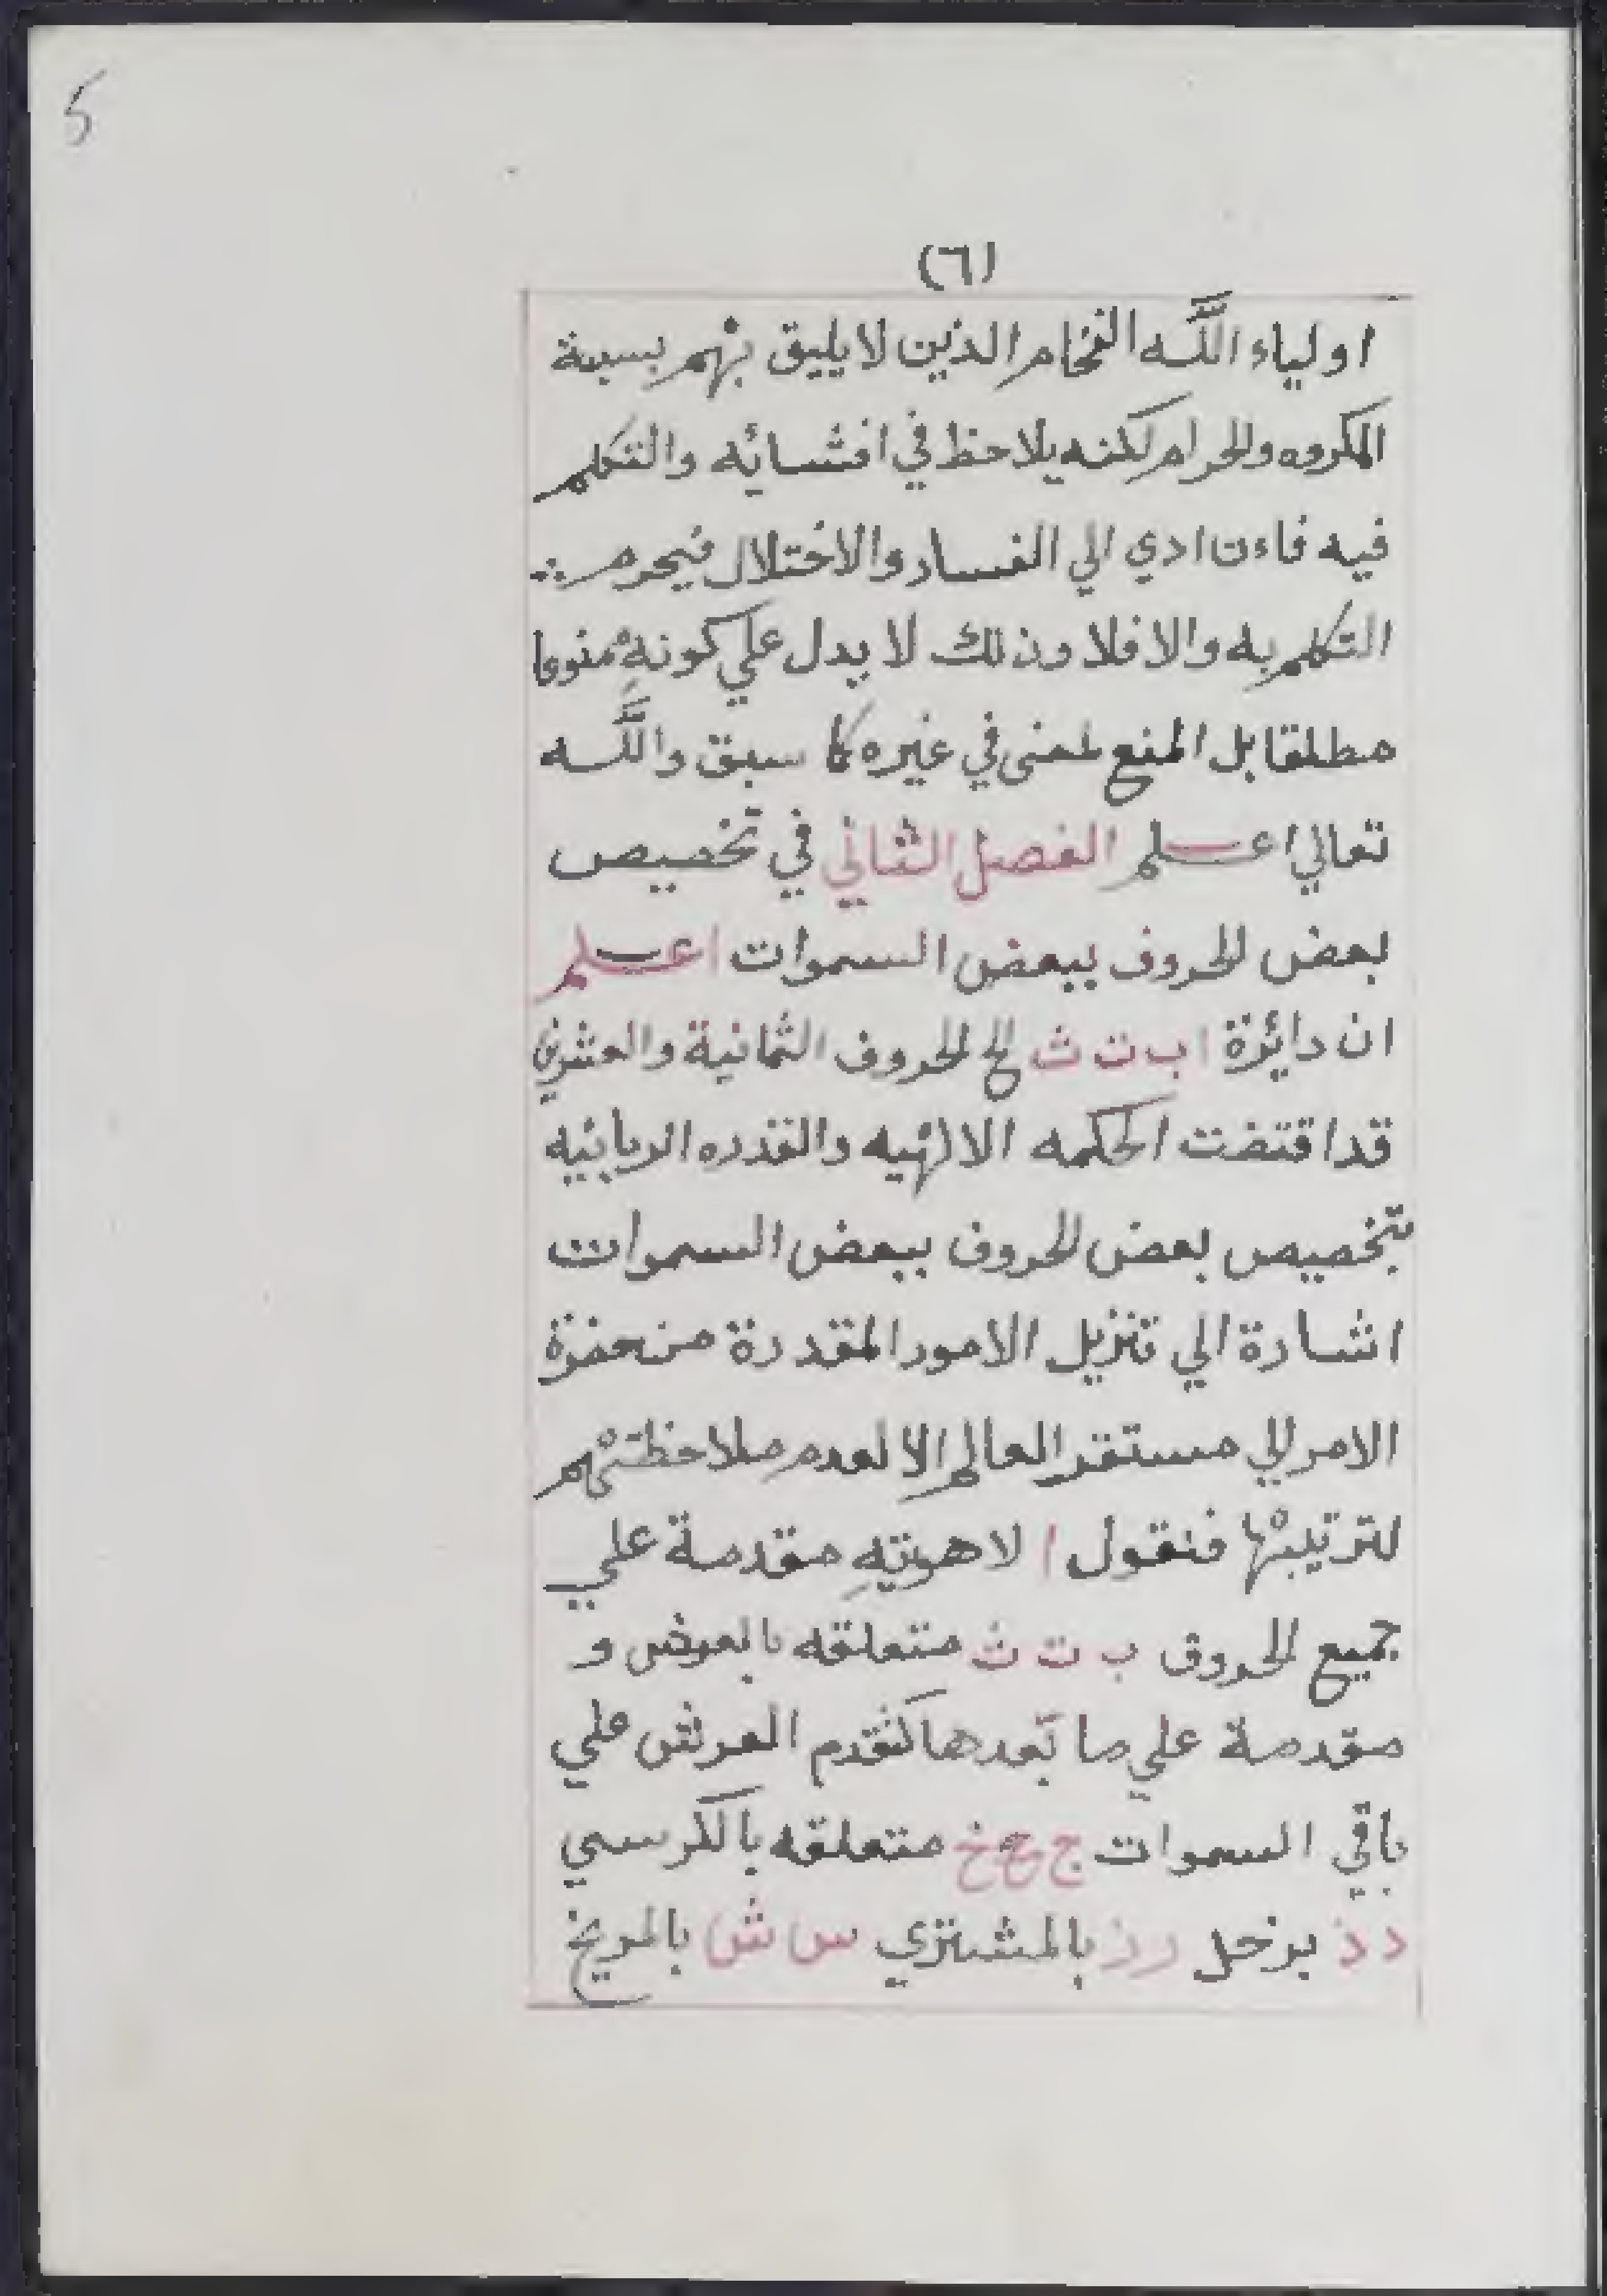 5
(٦)
اولياء اللّه الفخام الذين لا يليق بهم بسبة
المكروه والحرام لكنه يلاحظ في افشائه والتكلم
فيه فاءن ادي الي الفساد والاختلال فيحرم
التكلم به والا فلا وذلك لا يدل علي كونه ممنوعا
مطلقا بل المنع لمعنى في غيره كما سبق واللّه
تعالي اعلم الفصل الثاني في تخصيص
بعض الحروف ببعض السموات اعلم
ان دائرة ا ب ت ث الخ الحروف الثمانية والعشرين
قد اقتضت الحكمه الالهيه والقدره الربانيه
بتخصيص بعض الحروف ببعض السموات
اشارة الي تنزيل الامور المقدرة من حضرة
الامر الي مستقر العالم الا لعدم ملاحظتهم
لترتيبها فنقول ا لاهوتيه مقدمة علي
جميع الحروف ب ت ث متعلقه بالعرش و
مقدمة علي ما بعدها كتقدم العرش علي
باقي السموات ج ح خ متعلقه بالكرسي
د ذ بزحل ر ز بالمشتري س ش بالمريخ